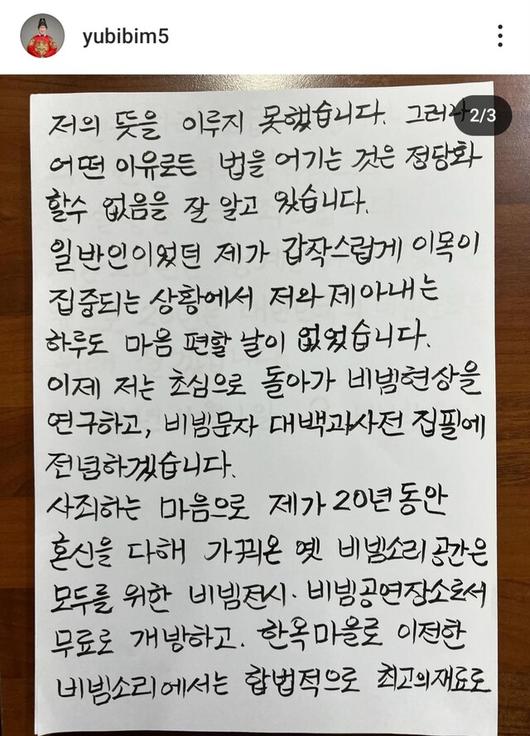 yubibim5
2/3
저의 뜻을 이루지 못했습니다. 그러나
어떤 이유로든 법을 어기는 것은 정당화
할수 없음을 잘 알고 있습니다.
일반인이었던 제가 갑작스럽게 이목이
집중되는 상황에서 저와 제아내는
하루도 마음 편할 날이 없었습니다.
이제 저는 초심으로 돌아가 비빔현상을
연구하고, 비빔문자 대백과사전 집필에
전념하겠습니다.
사죄하는 마음으로 제가 20년 동안
혼신을 다해 가꿔온 옛 비빔소리 공간은
모두를 위한 비빔전시·비빔공연장소로서
무료로 개방하고. 한옥마을로 이전한
비빔소리에서는 합법적으로 최고의재료로